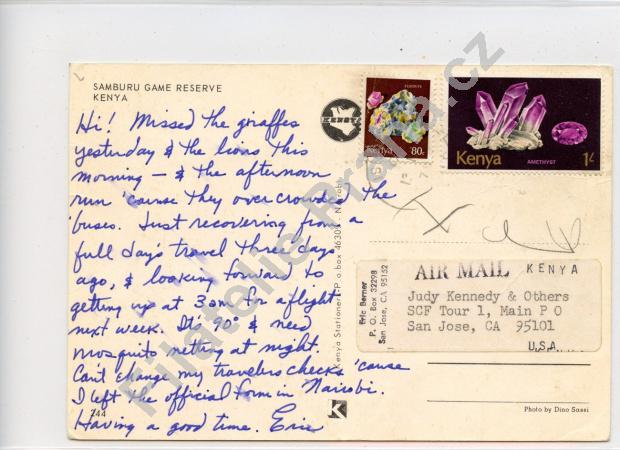 SAMBURU GAME RESERVE
KENYA
Hi! Missed the giraffes
yesterday & the lions this
morning – & the afternoon
run 'cause they overcrowded the
'buses. Just recovering from a
full day's travel three days
ago, & looking forward to
getting up at 3am for a flight
next week. It's 90° & need
mosquito netting at night.
Can't change my travelers checks 'cause
I left the official form in Nairobi.
Having a good time. Eric
244
KENYA
Kenya 80c
Kenya AMETHYST 1/-
Kenya Stationers P.O. box Nairobi
AIR MAIL KENYA
Eric Berner
P. O. Box 32298
San Jose, CA 95152
Judy Kennedy & Others
SCF Tour 1, Main P O
San Jose, CA 95101
U.S.A.
K
Photo by Dino Sassi
Filatelie Praha.cz